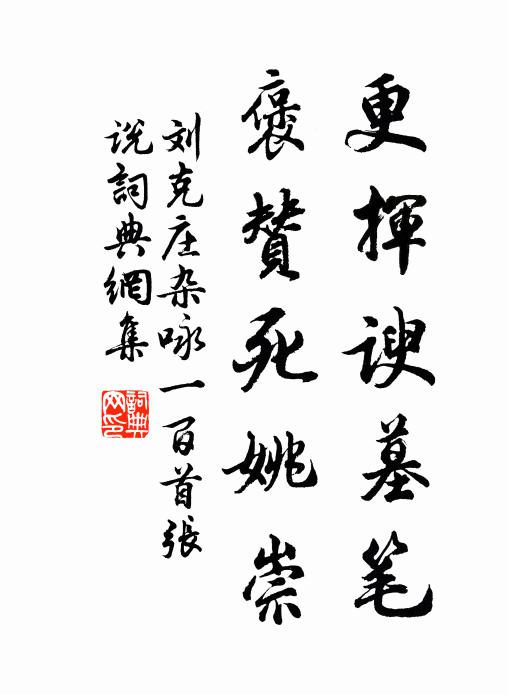 更揮谀墓笔
褒贊死姚崇
刘克庄杂咏一百首張
说詞典網集
詞典网印